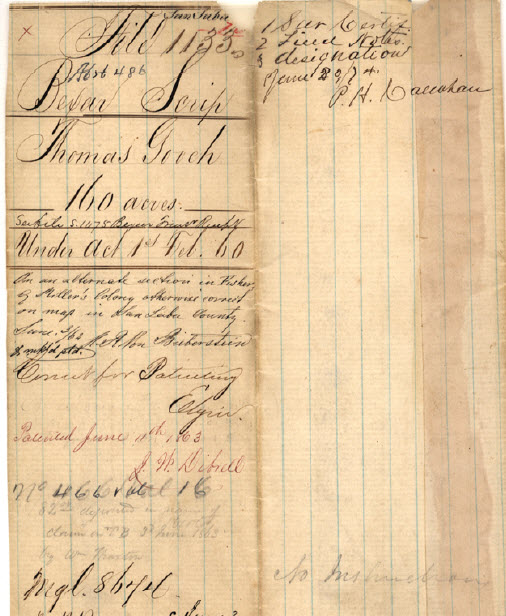 San Saba
x
File 1133
Abst 486
Bexar Scrip
Thomas Gooch
160 acres.
Under Act 1st Feb. 60
On an alternate section in Fisher
& Miller's Colony otherwise correct
on map in San Saba County.
June 3/63
Bieberstein
Correct for Patenting
Elgin.
Patented June 11th 1863
J. W. Dibrell
No 466 Vol 16
deposited in name of
3d June 1863
by Wm
1 Sur Certif
2 Field Notes.
3 designation
June 23/74.
P. H. Callahan
No Instruction